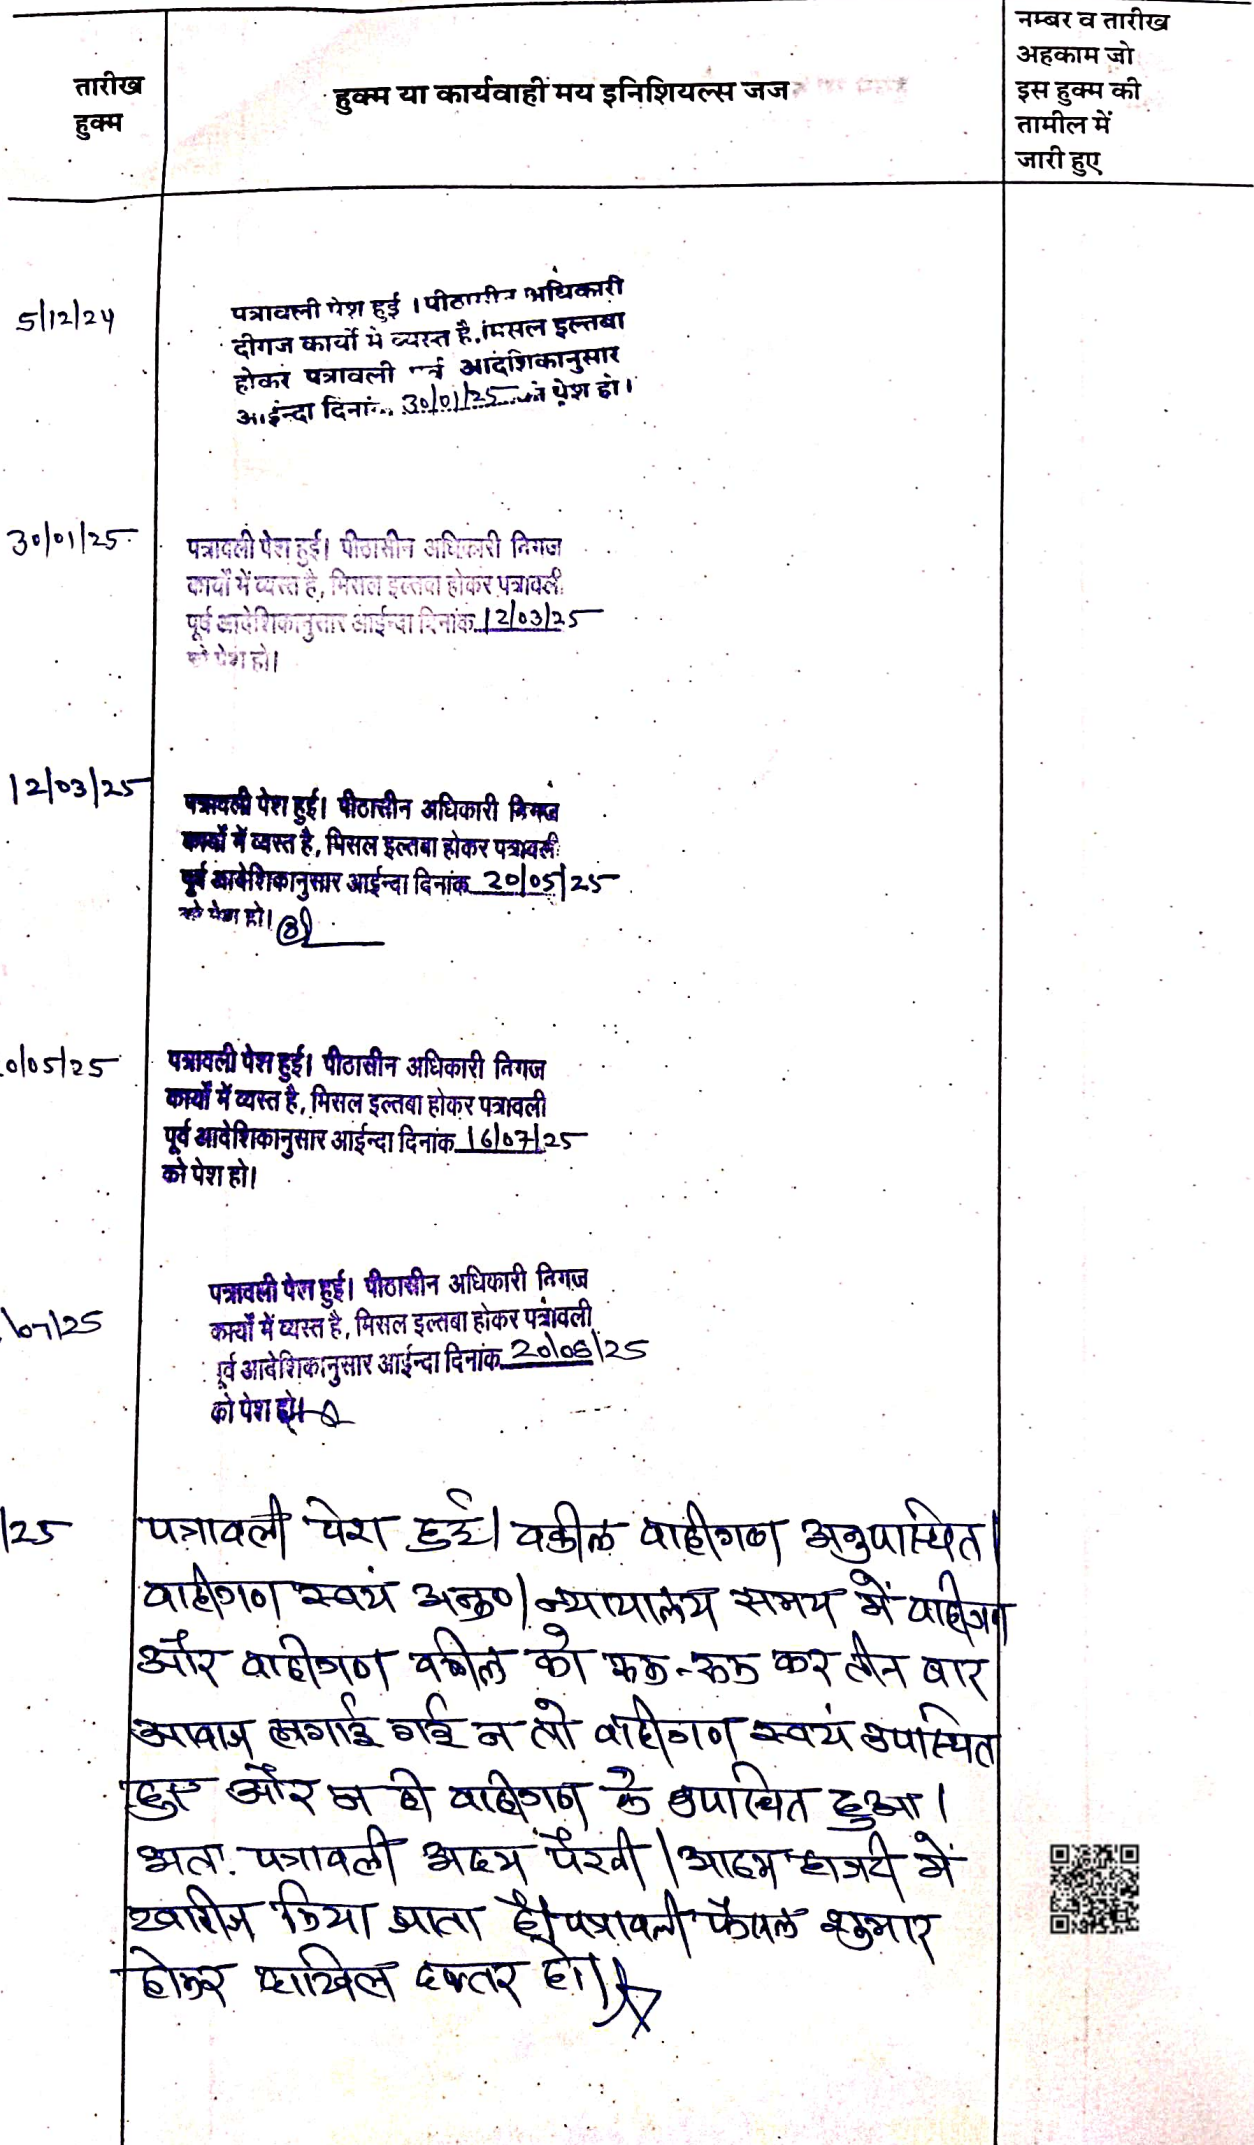 तारीख
हुक्म
हुक्म या कार्यवाही मय इनिशियल्स जज
नम्बर व तारीख
अहकाम जो
इस हुक्म की
तामील में
जारी हुए
5/12/24
पत्रावली पेश हुई । पीठासीन अधिकारी
दीगज कार्यो मे व्यस्त है, मिसल इल्तबा
होकर पत्रावली आदेशिकानुसार
आईन्दा दिनांक 30/01/25 को पेश हो।
30/01/25
पत्रावली पेश हुई। पीठासीन अधिकारी निगज
कार्यों में व्यस्त है, मिसल इल्तबा होकर पत्रावली
पूर्व आदेशिकानुसार आईन्दा दिनांक 12/03/25
को पेश हो।
12/03/25
पत्रावली पेश हुई। पीठासीन अधिकारी निगज
कार्यों में व्यस्त है, मिसल इल्तबा होकर पत्रावली
पूर्व आदेशिकानुसार आईन्दा दिनांक 20/05/25
को पेश हो।
0/05/25
पत्रावली पेश हुई। पीठासीन अधिकारी निगज
कार्यों में व्यस्त है, मिसल इल्तबा होकर पत्रावली
पूर्व आदेशिकानुसार आईन्दा दिनांक 16/07/25
को पेश हो।
/07/25
पत्रावली पेश हुई। पीठासीन अधिकारी निगज
कार्यों में व्यस्त है, मिसल इल्तबा होकर पत्रावली
पूर्व आदेशिकानुसार आईन्दा दिनांक 20/08/25
को पेश हो।
/25
पत्रावली पेश हुई। वकील वादीगण अनुपास्थित।
वादीगण स्वयं अनु०। न्यायालय समय में वादीगण
और वादीगण वकील को रूक-रूक कर तीन बार
आवाज लगाई गई न तो वादीगण स्वयं उपास्थित
हुए और न ही वादीगण के उपास्थित हुआ।
अतः पत्रावली अदम पैरवी । आदम हाजरी में
खारीज किया जाता है। पत्रावली फैसल शुमार
होकर दाखिल दफ्तर हो।